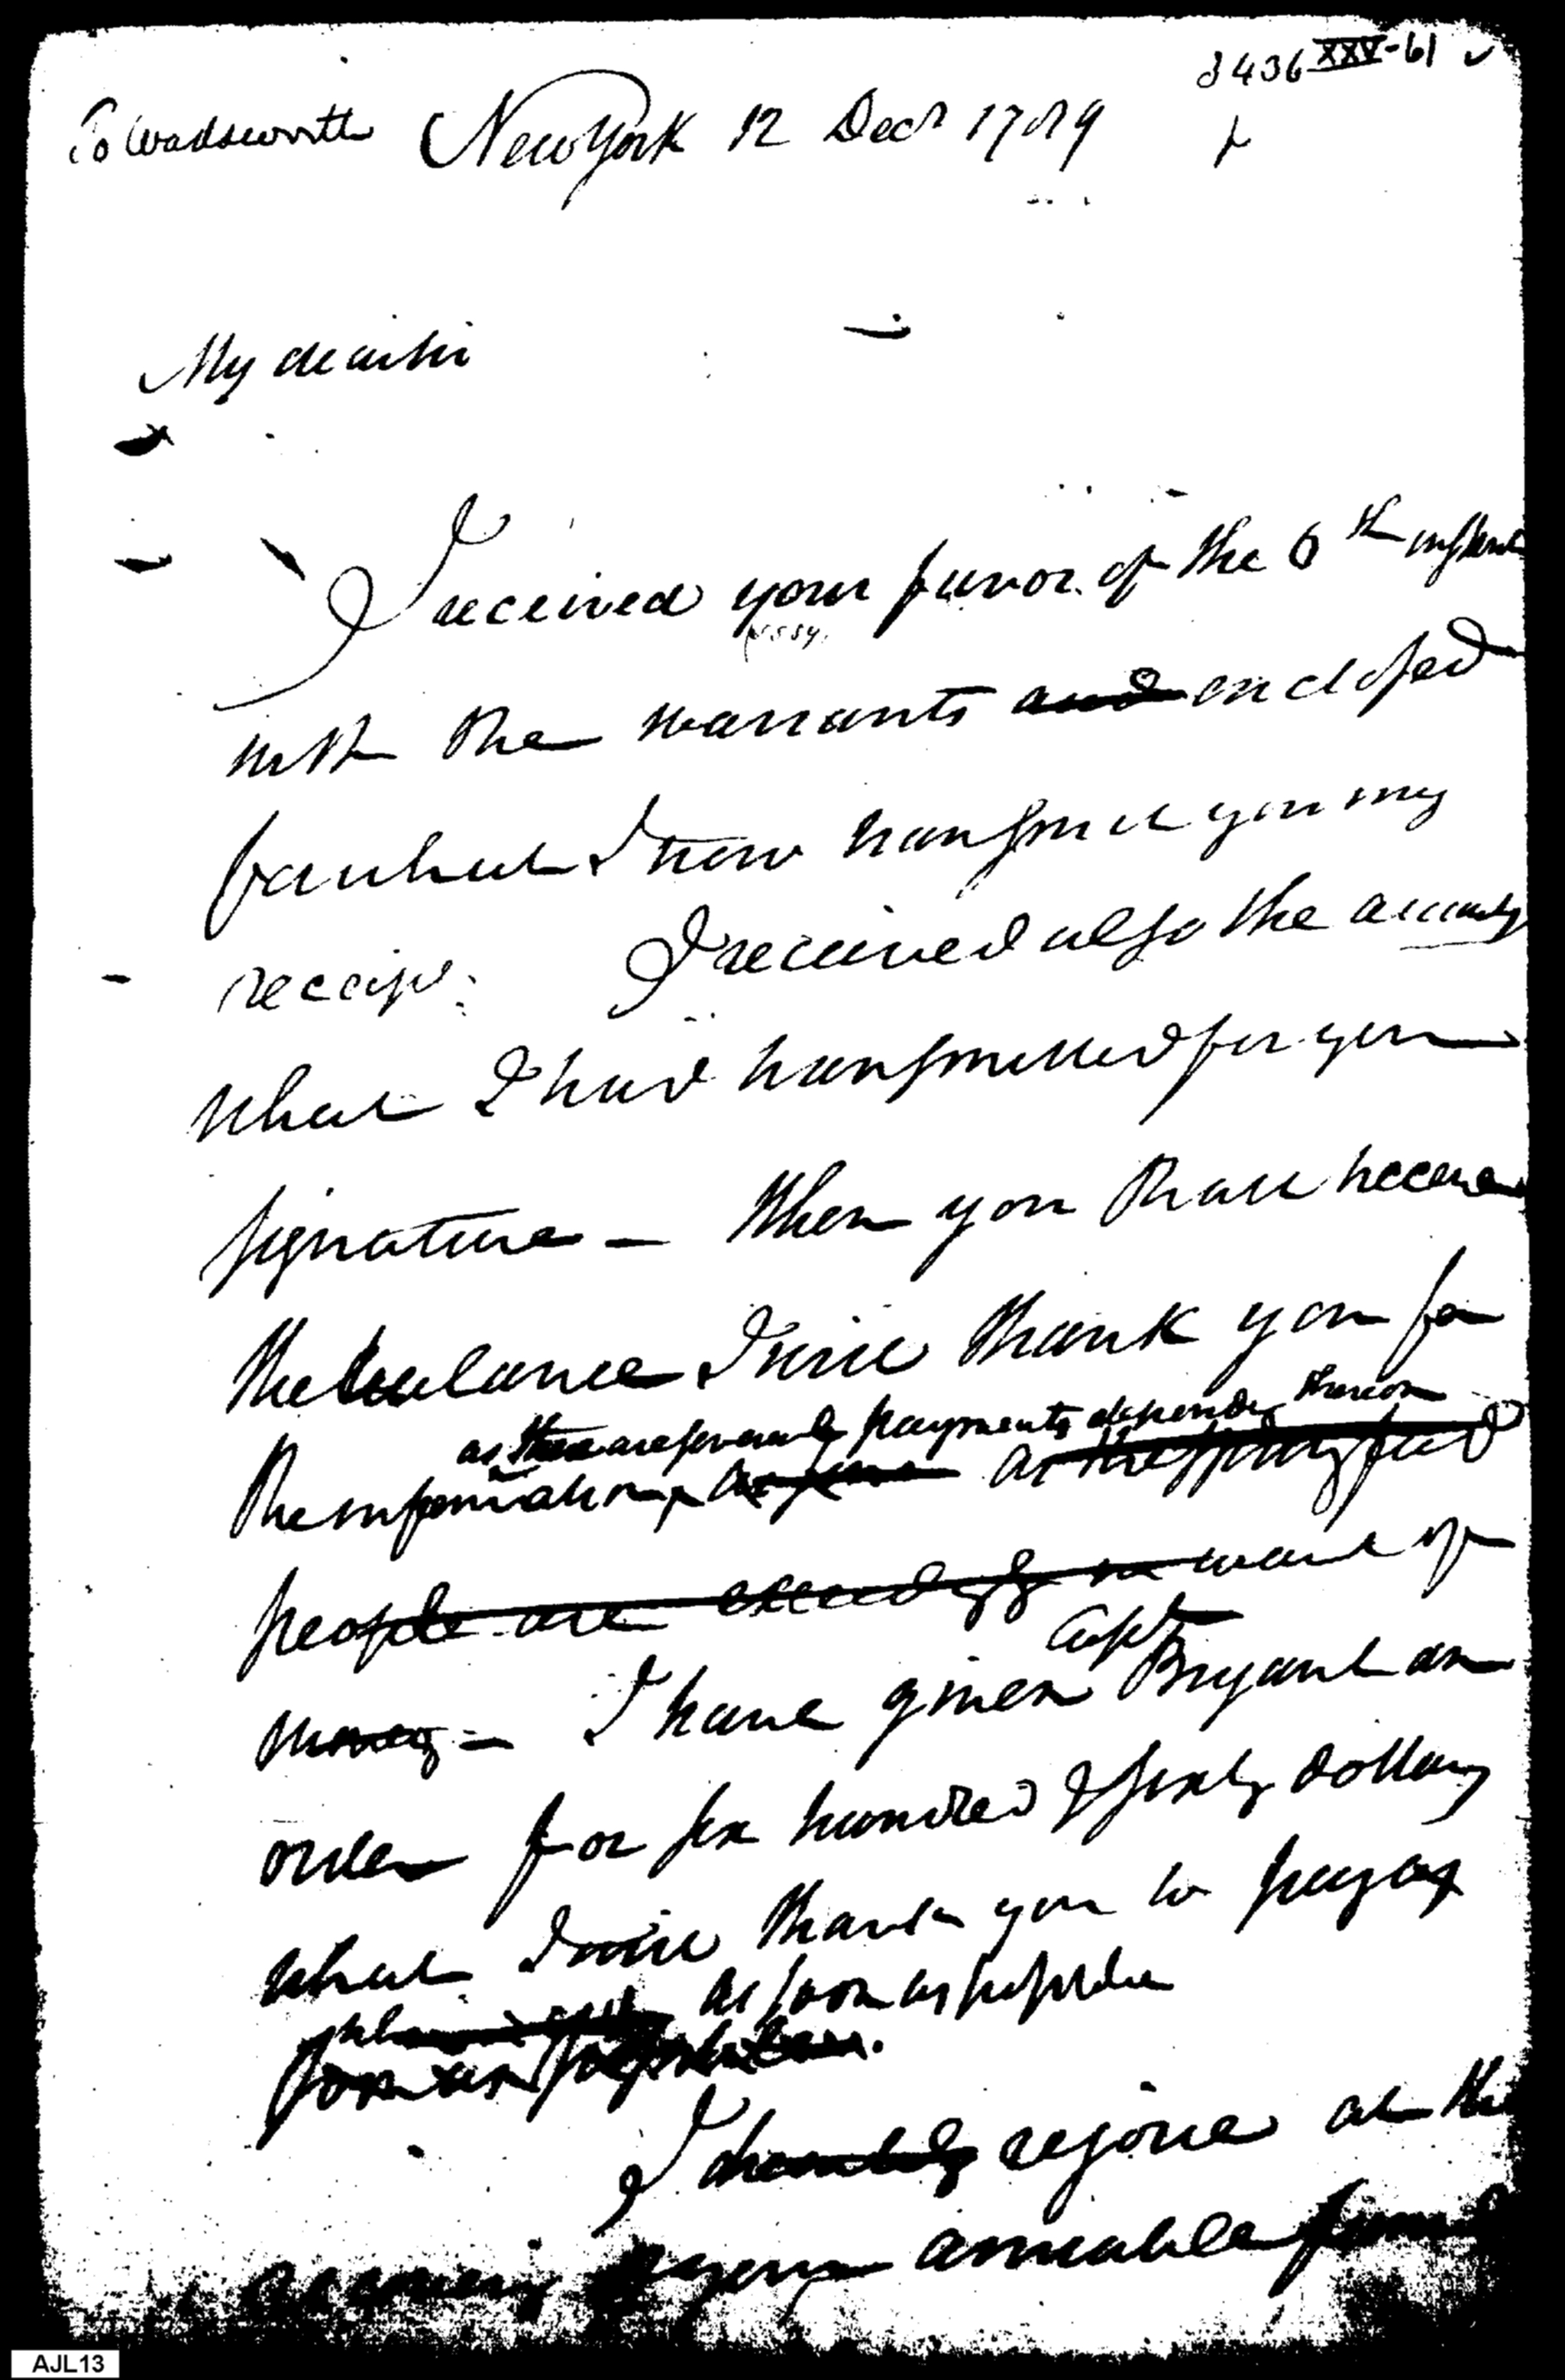 3436 XXV-61
To Wadsworth New York 12 Decr 1789
My dear sir
I received your favor of the 6th instant
with the warrants and enclosed
for which I now transmit you my
receipt. I received also the accounts
what I had transmitted for your
signature - When you shall receive
the balance I will thank you for
as there are severally payments depending thereon
the information, as the
people are exceedingly in want of
money - I have given Capt Bryant an
order for six hundred & sixty dollars
what I will thank you to pay
as soon as possible
I heartily rejoice at the
recovery your amiable
AJL13